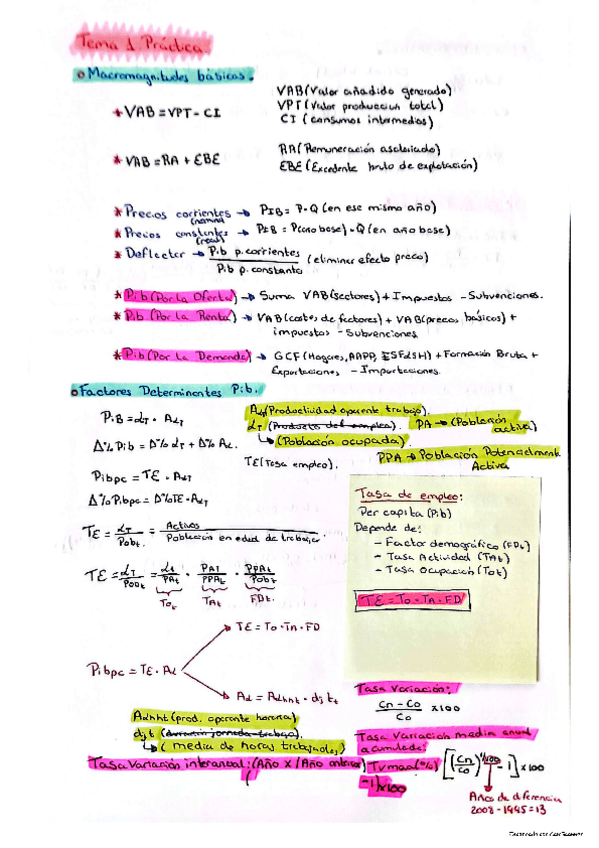 Tema 1 Práctica.
Macromagnitudes básicas.
* VAB = VPT - CI
VAB (Valor añadido generado)
VPT (Valor produccion total)
CI (consumos intermedios)
* VAB = RA + EBE
RA (Remuneración asalariado)
EBE (Excedente bruto de explotación)
* Precios corrientes → PIB = P·Q (en ese mismo año)
* Precios constantes → PIB = P(año base)·Q (en año base)
* Deflactor → Pib p. corrientes / Pib p. constante (eliminar efecto precio)
* Pib (Por la Oferta) → Suma VAB (sectores) + Impuestos - Subvenciones.
* Pib (Por la Renta) → VAB (costes de factores) + VAB (precios básicos) +
impuestos - Subvenciones
* Pib (Por la Demanda) → GCF (Hogares, AAPP, ISFLSH) + Formación Bruta +
Exportaciones - Importaciones.
Factores Determinantes Pib.
PiB = LT · ALT
Δ% Pib = Δ% LT + Δ% AL.
Pibpc = TE · ALT
Δ% Pibpc = Δ% TE · ALT
ALT (Productividad aparente trabajo).
LT (Producto del empleo).
(Población ocupada).
TE (Tasa empleo).
PA → (Población activa)
PPA → Población Potencialmente
Activa
TE = LT / Pobt. = Activos / Población en edad de trabajar
TE = LT / Pobt = Lt / PAt · PAt / PPAt · PPAt / Pobt
Tot TAt FDt.
Tasa de empleo:
Per capita (Pib)
Depende de:
- Factor demográfico (FDt)
- Tasa Actividad (TAt)
- Tasa Ocupación (Tot)
TE = To · TA · FD
Pibpc = TE · AL
TE = To · TA · FD
AL = ALhht · djt
ALhht (prod. aparente horaria)
djt (duración jornada trabajo).
(media de horas trabajadas)
Tasa Variación interanual: (Año x / Año anterior)
-1) x100
Tasa Variación:
Cn - Co / Co x100
Tasa Variación media anual
acumulada:
Tvmaa (%) [(Cn / Co) - 1] x100
Años de diferencia
2008 - 1995 = 13